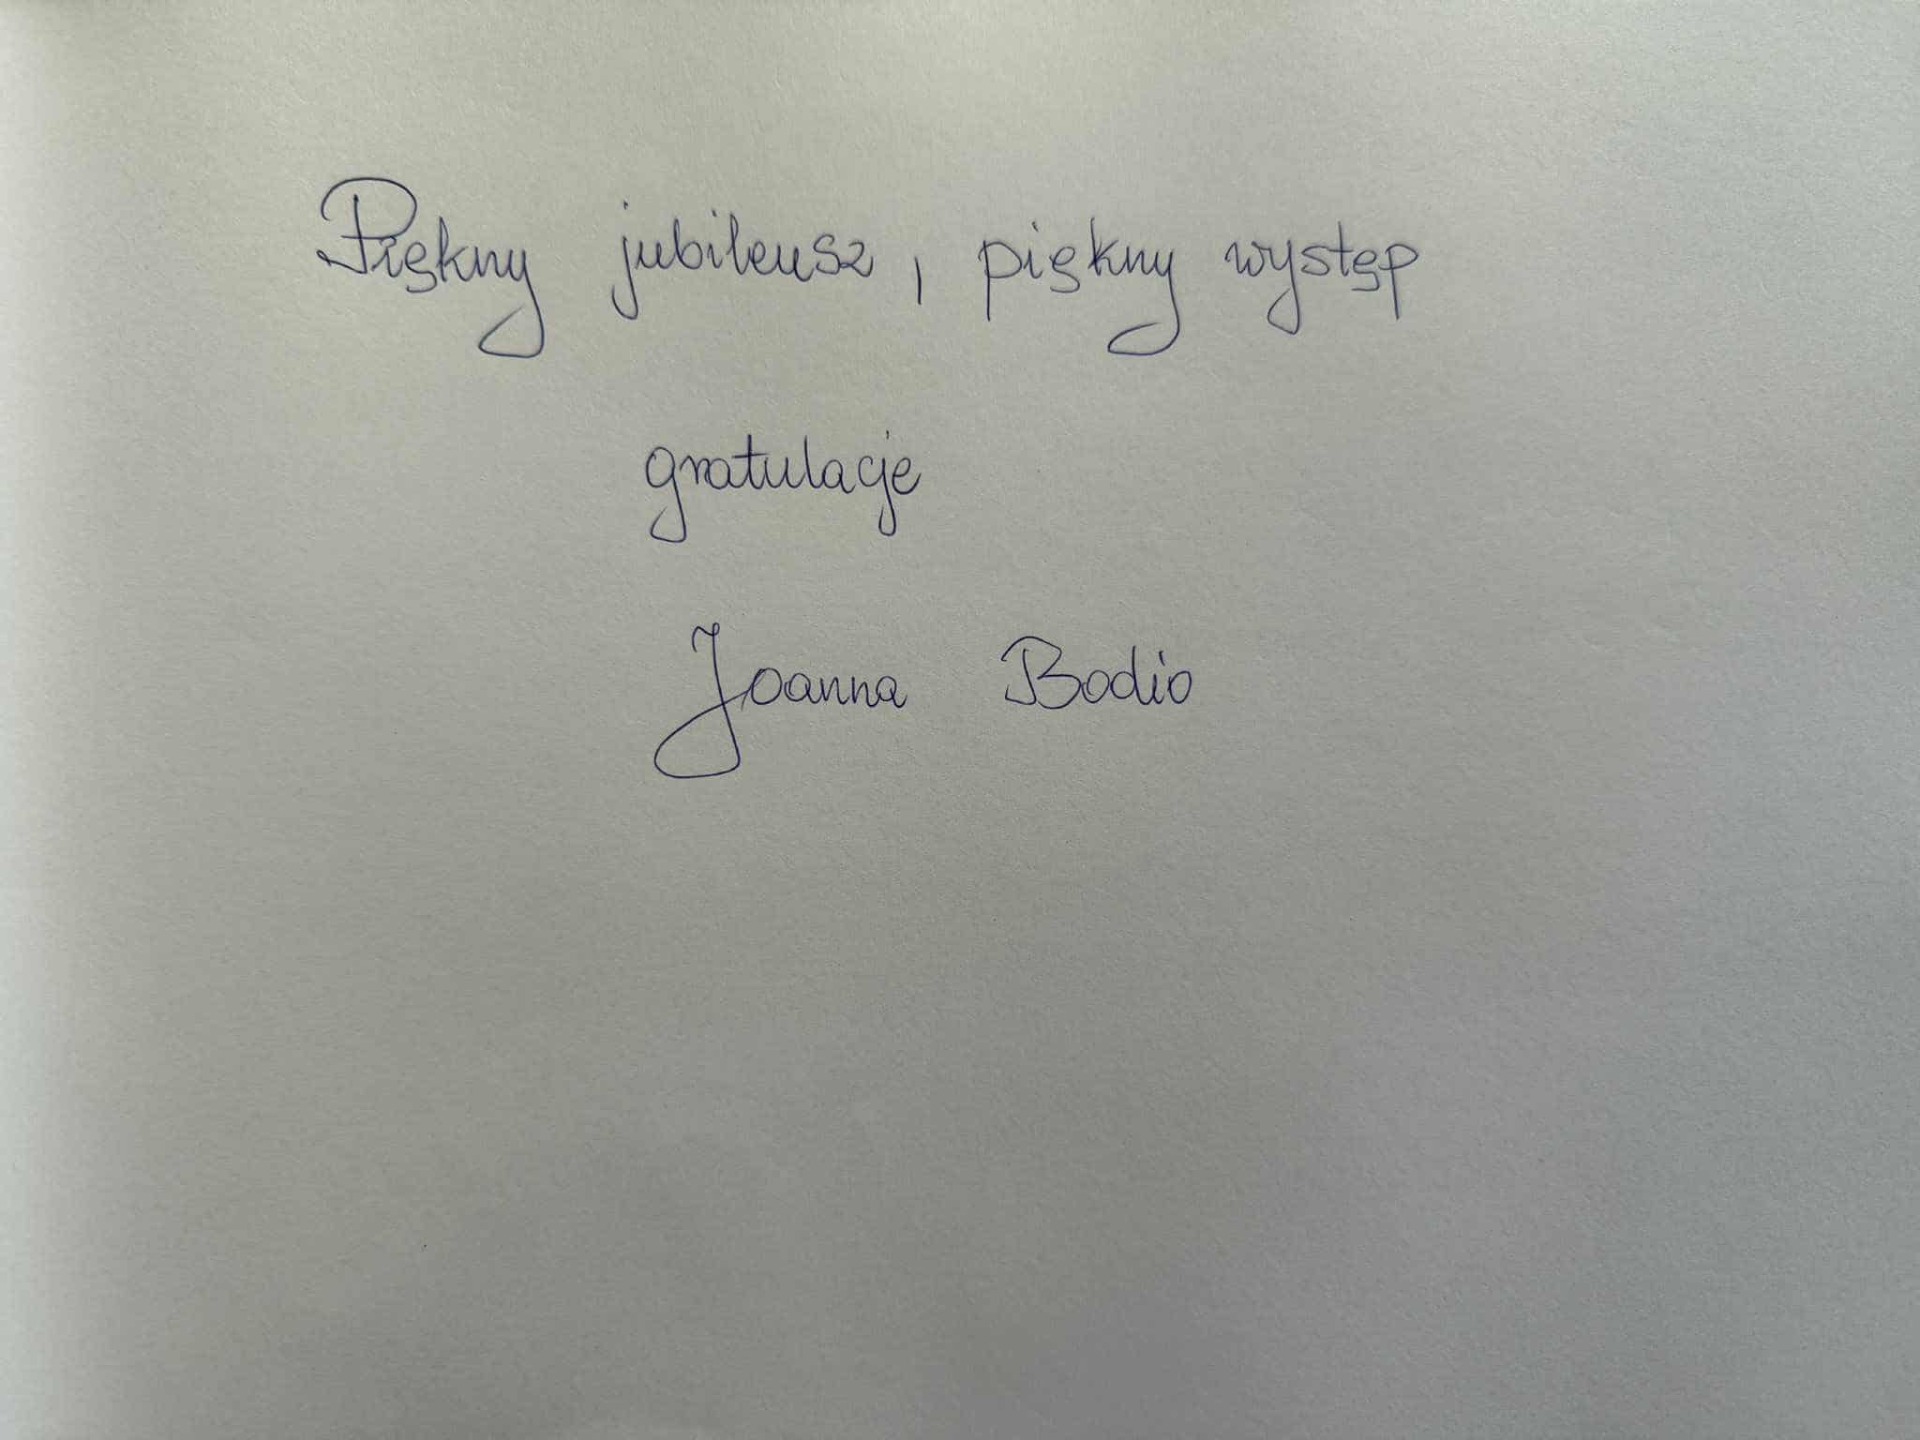 Piękny jubileusz, piękny występ
gratulacje
Joanna Bodio